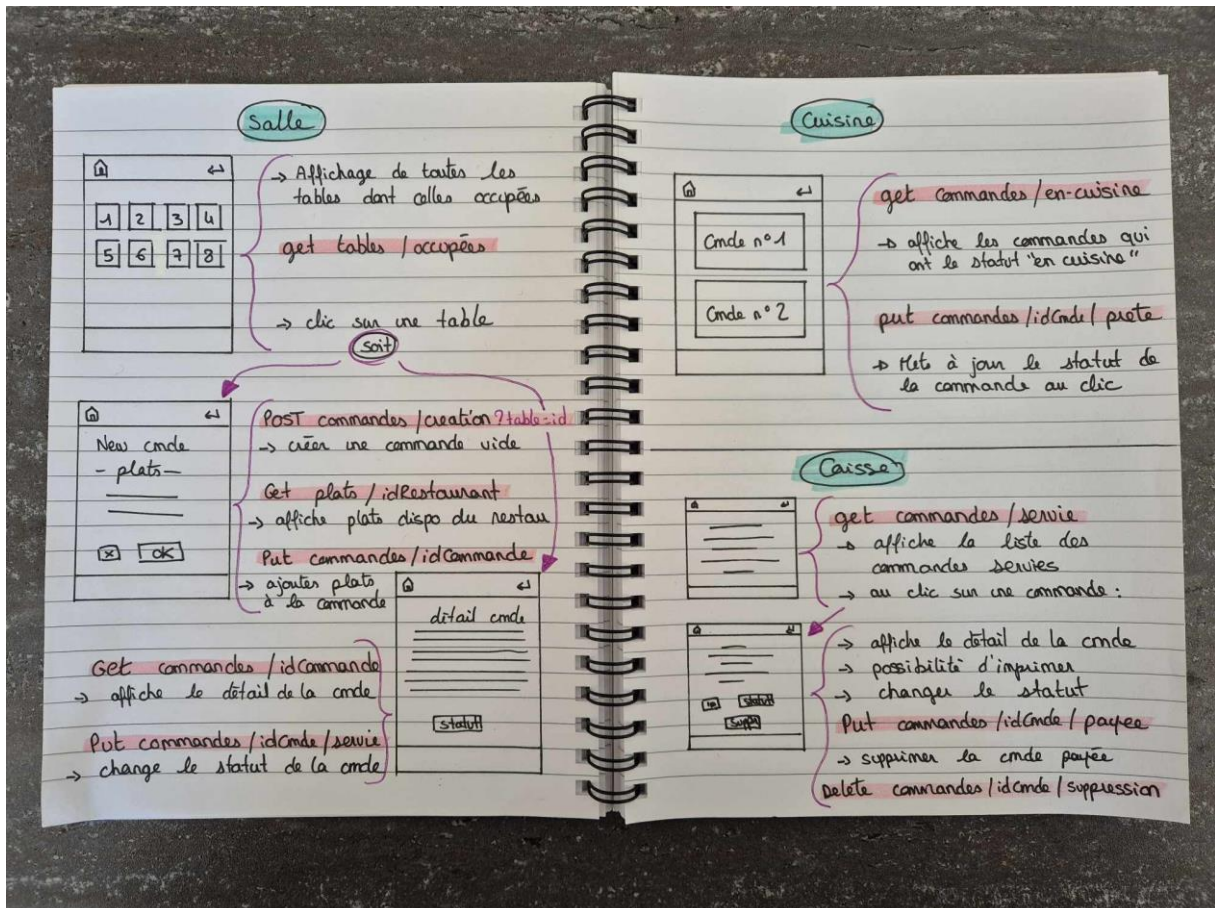 Salle
1 2 3 4
5 6 7 8
→ Affichage de toutes les
tables dont celles occupées
get tables / occupées
→ clic sur une table
soit
New cmde
- plats -
x OK
POST commandes / creation ?table=id
→ créer une commande vide
Get plats / idRestaurant
→ affiche plats dispo du restau
Put commandes / idCommande
→ ajoutes plats
à la commande
détail cmde
statut
Get commandes / idCommande
→ affiche le détail de la cmde
Put commandes / idCmde / servie
→ change le statut de la cmde
Cuisine
Cmde n° 1
Cmde n° 2
get commandes / en-cuisine
→ affiche les commandes qui
ont le statut "en cuisine"
put commandes / idCmde / prete
→ Mets à jour le statut de
la commande au clic
Caisse
get commandes / servie
→ affiche la liste des
commandes servies
→ au clic sur une commande :
statut
suppr
→ affiche le détail de la cmde
→ possibilité d'imprimer
→ changer le statut
Put commandes / idCmde / payee
→ supprimer la cmde payée
Delete commandes / idCmde / suppression